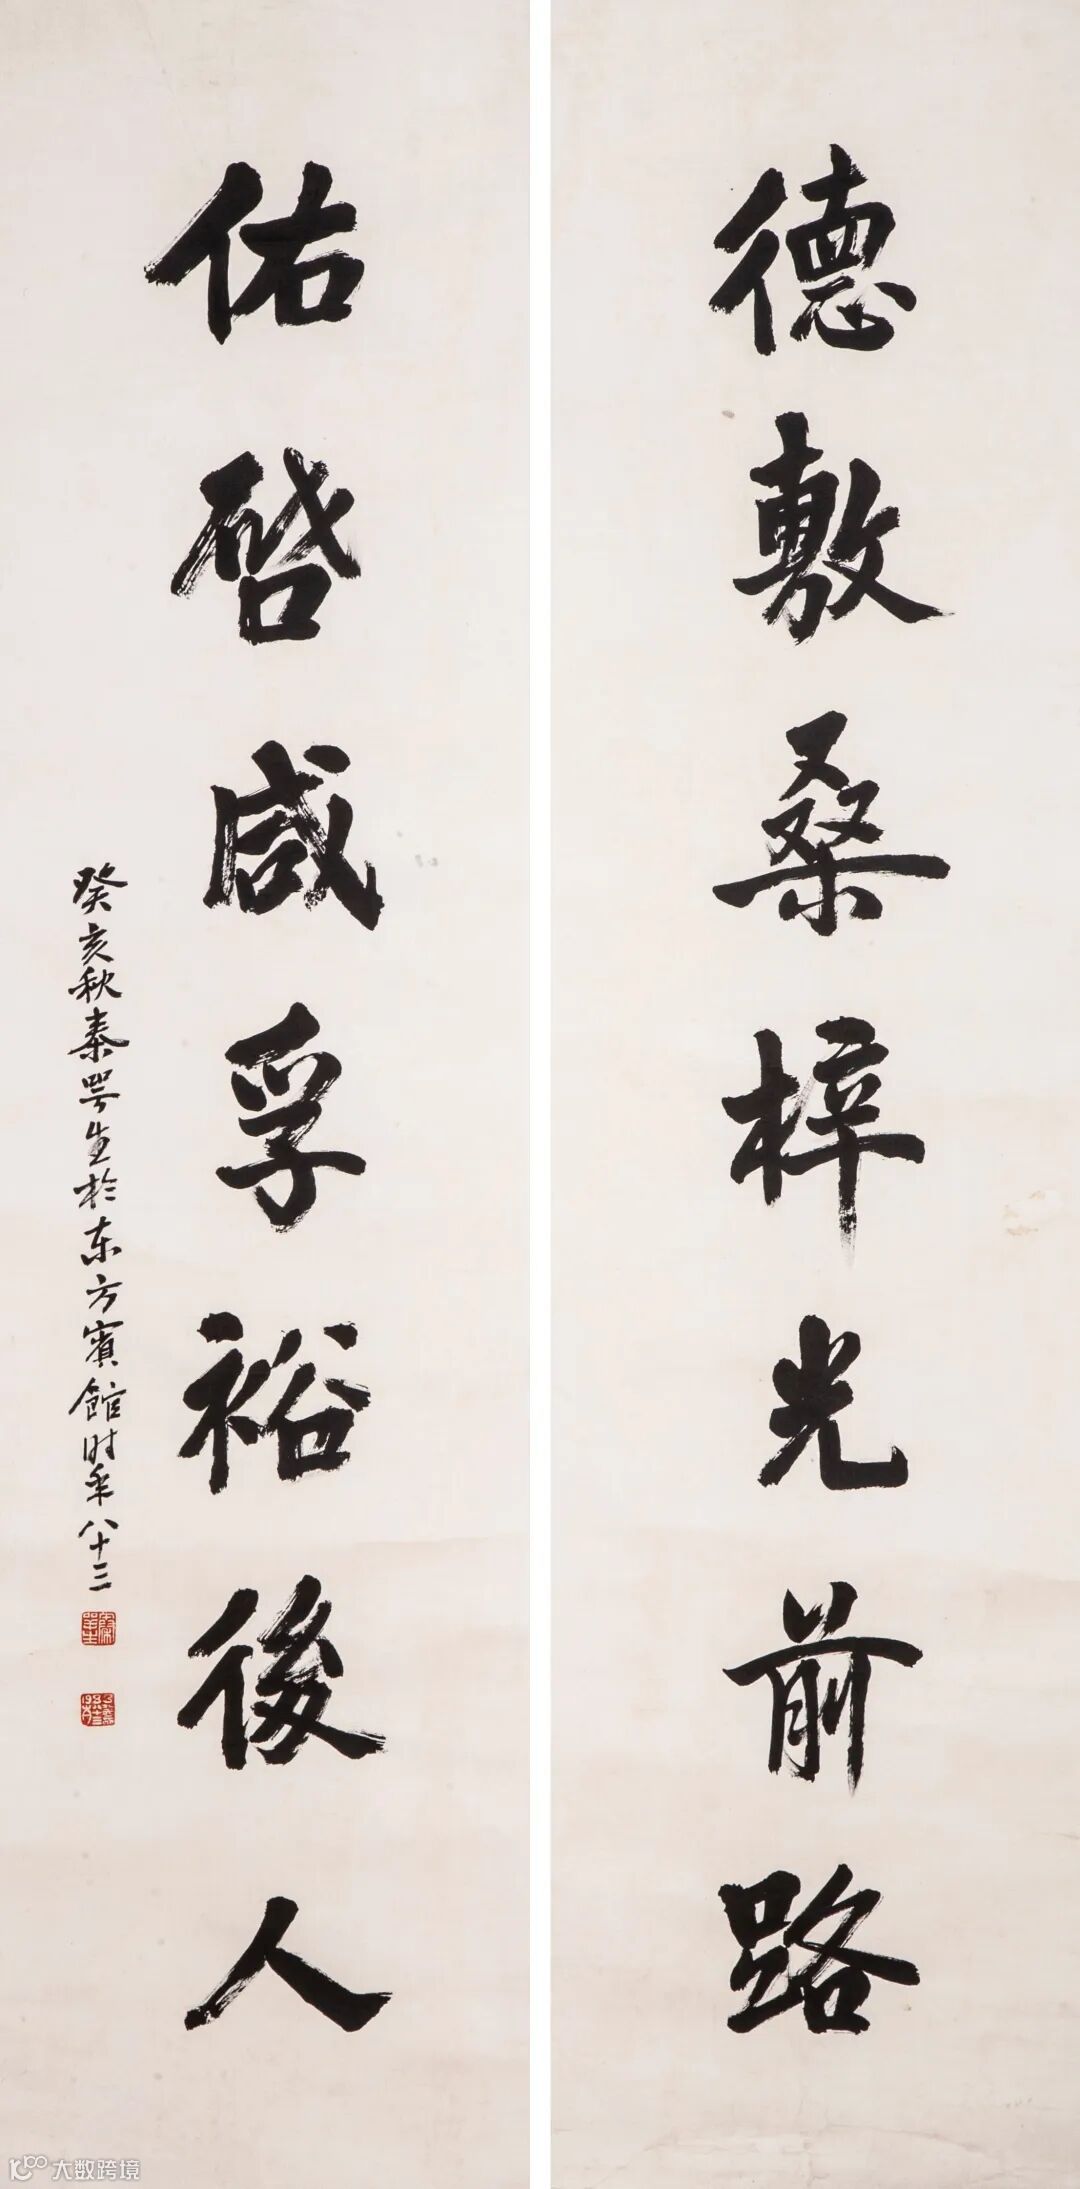 德敷桑梓光前路
佑啓咸孚裕後人
癸亥秋秦咢生於东方賓館时年八十三
大数跨境